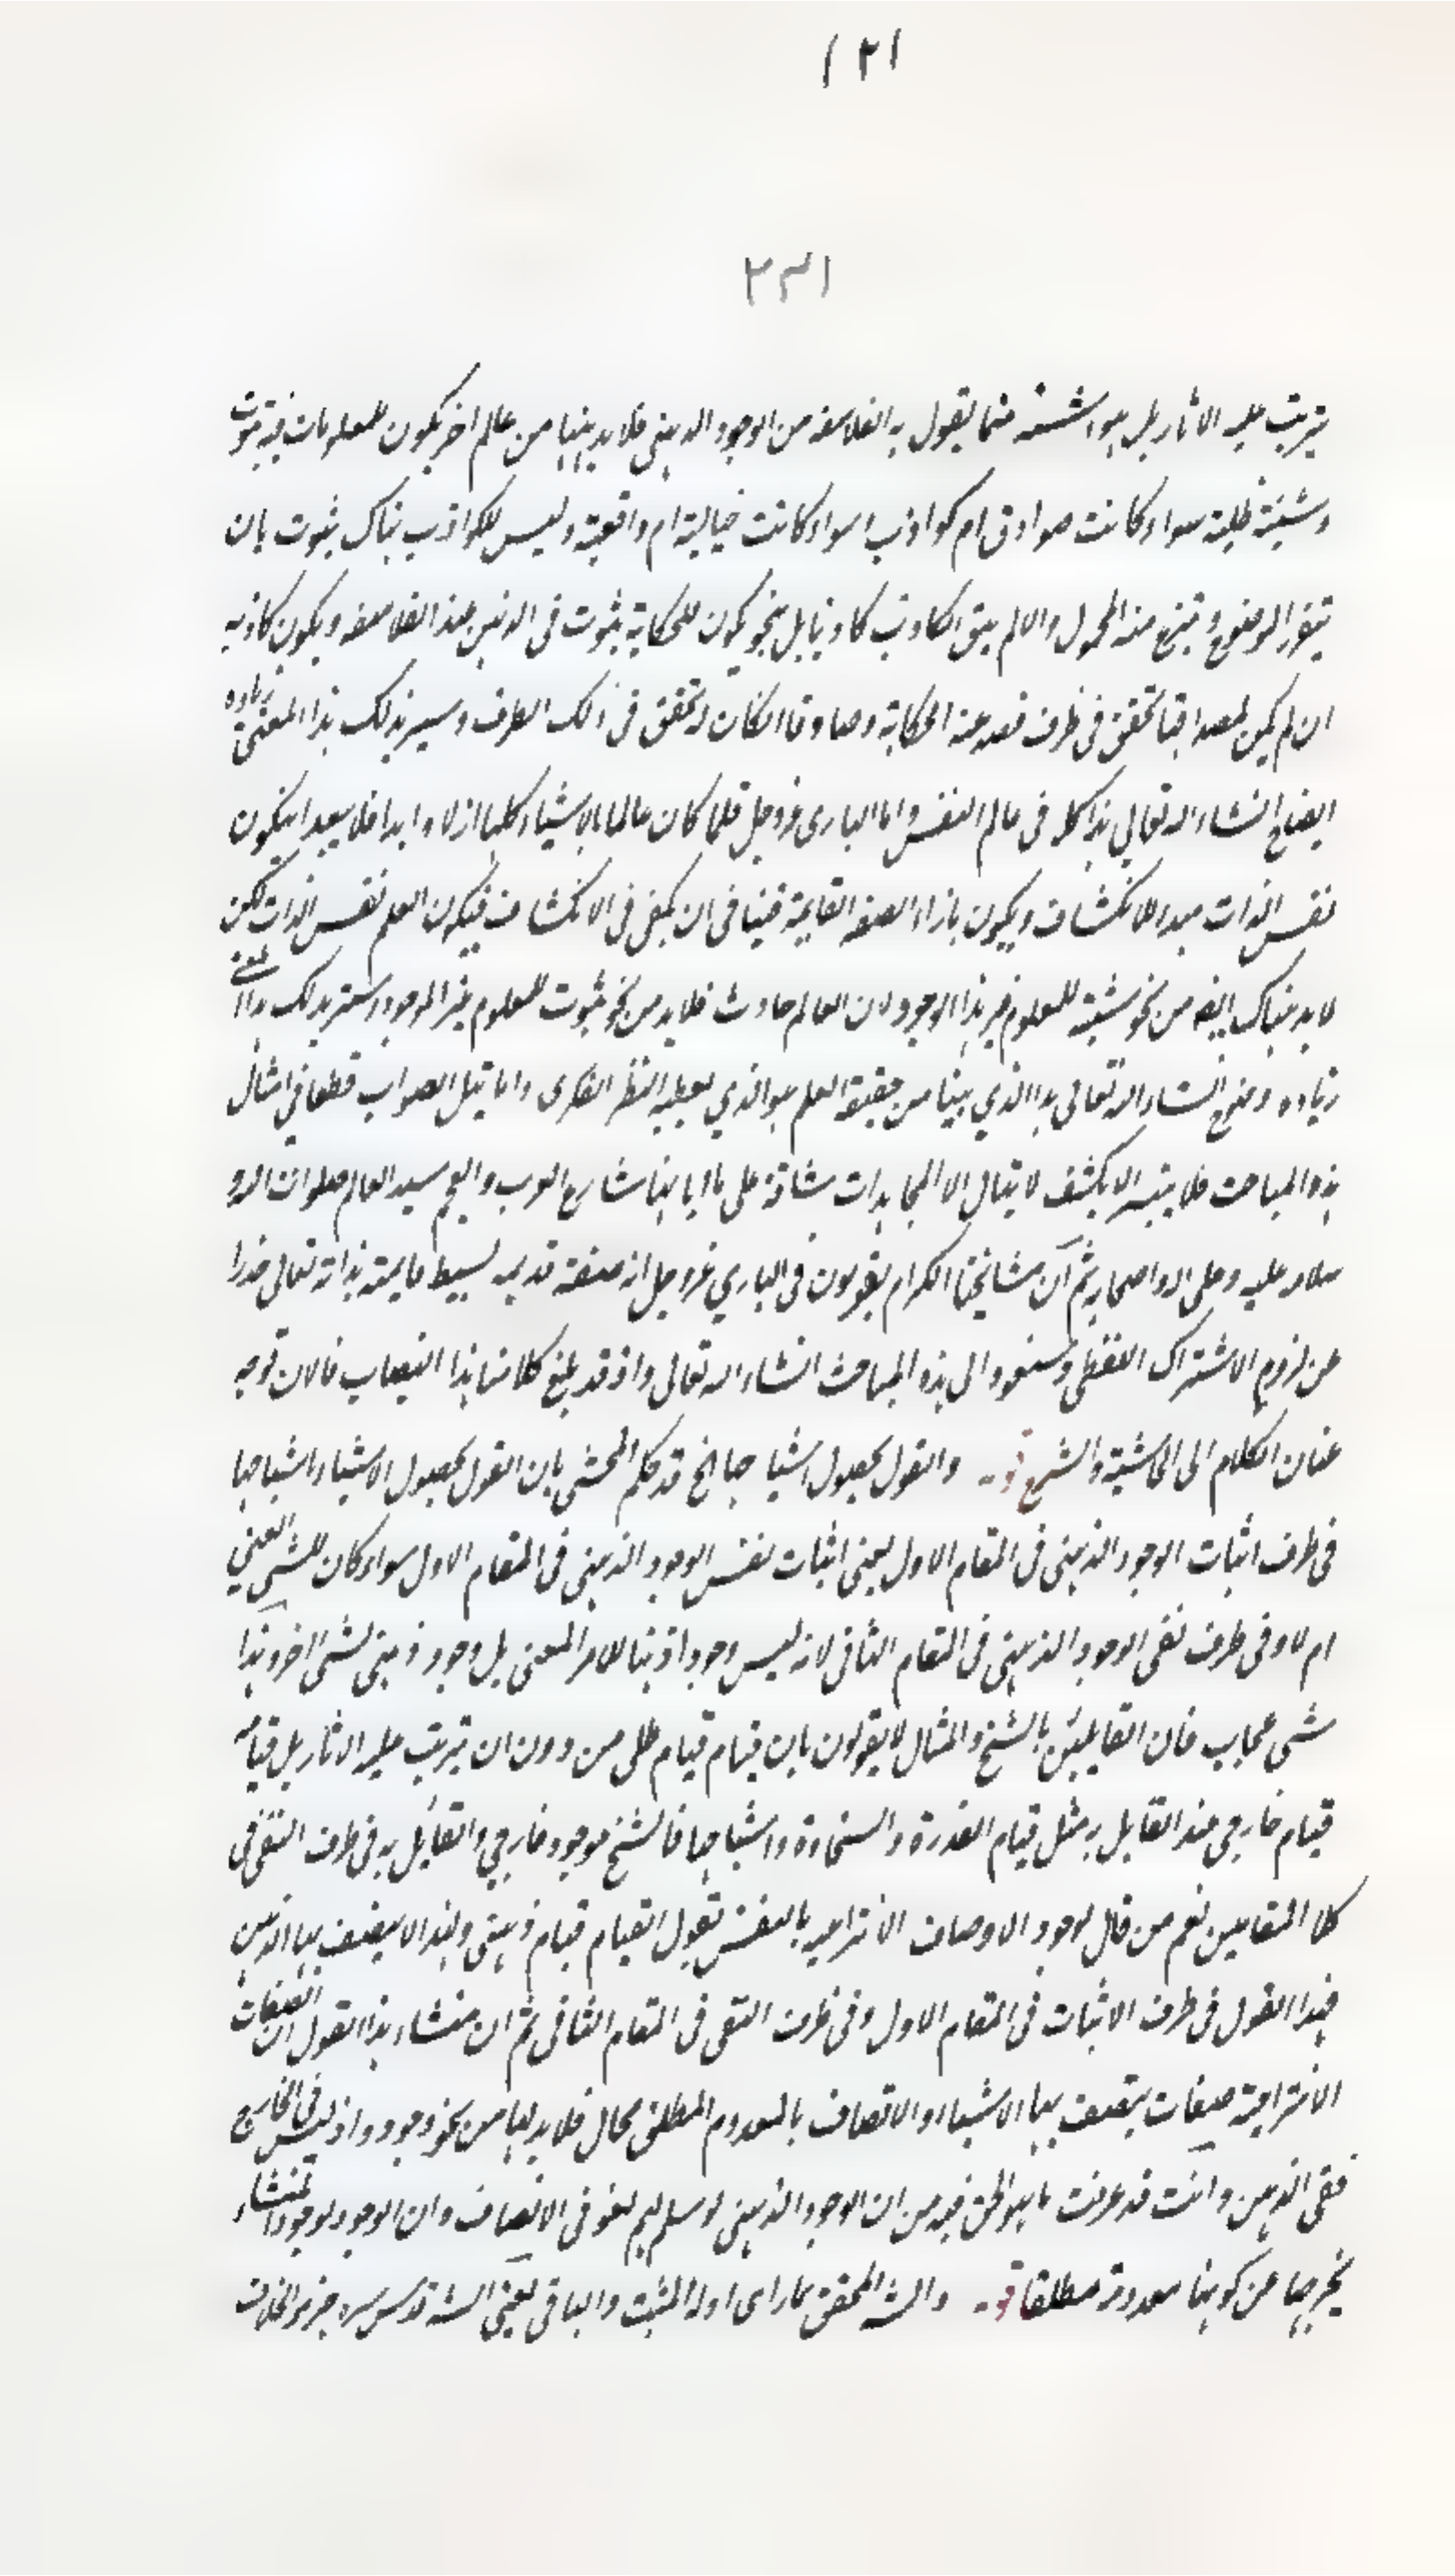 ١٢١
١٣٢
يترتب عليه الاثار بل هو اشنه مما يقول به الفلاسفه من الوجود الذهنى فلابد من عالم اخر يكون للمعلومات فيه ثبوت
وشيئية ظلية سواء كانت صوادق ام كواذب سواء كانت خيالية ام واقعية وليس للكواذب هناك ثبوت بان
يتقرر الموضوع وينتزع منه المحمول والا لم يبق الكاذب كاذبا بل بنحو يكون للحكاية ثبوت فى الذهن عند الفلاسفه ويكون كاذبه
ان لم يكن لمصداقها تحقق فى ظرف قصد عنه الحكاية وصادقا ان كان له تحقق فى ذلك الظرف وسيزيدك هذا المعنى زياده
ايضاح انشاء الله تعالى هذا كله فى عالم النفس واما البارى عزوجل فلما كان عالما بالاشياء كلها ازلا وابدا فلا يبعد ان يكون
نفس الذات مبدا للانكشاف ويكون بازاء الصفه القايمة فينا فى ان يكفى فى الانكشاف فيكون العلم نفس الذات لكن
لا بد هناك ايضا من نحو شيئية للمعلوم غير هذا الوجود لان العالم حادث فلابد من نحو ثبوت للمعلوم غير الوجود وسنزيدك هذا المعنى
زياده وضوح انشاء الله تعالى هذا الذي بينا من حقيقة العلم هو الذي يعطيه النظر الفكرى واما نيل الصواب قطعا فى امثال
هذه المباحث فلا يتيسر الا بكشف لا ينال الا المجاهدات شاقة على ما ابانها شارع العرب والعجم سيد العالم صلوات الله و
سلامه عليه وعلى اله واصحابه ثم ان مشايخنا الكرام يقولون فى الباري عزوجل انه صفة قديمه بسيطه قايمة بذاته تعالى حذرا
عن لزوم الاشتراك اللفظى وسنعود الى هذه المباحث انشاء الله تعالى واذ قد بلغ كلامنا هذا النصاب فالان نوجه
عنان الكلام الى الحاشية والشرح قوله والقول بحصول اشباحها الخ قد حكم المحشى بان القول بحصول الاشياء باشباحها
فى طرف اثبات الوجود الذهنى فى المقام الاول يعنى اثبات نفس الوجود الذهنى فى المقام الاول سواء كان للشى العينى
ام لا وفى طرف نفى الوجود الذهنى فى المقام الثانى لانه ليس وجودا ذهنيا للامر العينى بل وجود ذهنى لشى اخر وهذا
شى عجاب فان القايلين بالشبح والمثال لا يقولون بان قيام قيام ظلى من دون ان يترتب عليه الاثار بل قيامه
قيام خارجى عند القايل به مثل قيام القدرة والسخاوة واشباهها فالشبح موجود خارجي والقايل به فى طرف النفى فى
كلا المقامين نعم من قال بوجود الاوصاف الانتزاعيه بالنفس يقول القيام قيام ذهنى ولهذا لا يتصف بها الذهن
فهذا القول فى طرف الاثبات فى المقام الاول وفى طرف النفى فى المقام الثانى ثم ان منشاء هذا القول ان الصفات
الانتزاعية صفات يتصف بها الاشياء والاتصاف بالمعدوم المطلق محال فلابد لها من نحو وجود واذ ليس فى الخارج
ففى الذهن وانت قد عرفت ما هو الحق فيه من ان الوجود الذهنى لو سلم لهم لغو فى الاتصاف وان الوجود لوجود المنشاء
يخرجها عن كونها معدومة مطلقا قوله والشه المحقق لما راى ادلة المثبت والباقى يعنى الشه قدس سره حرر الخلاف